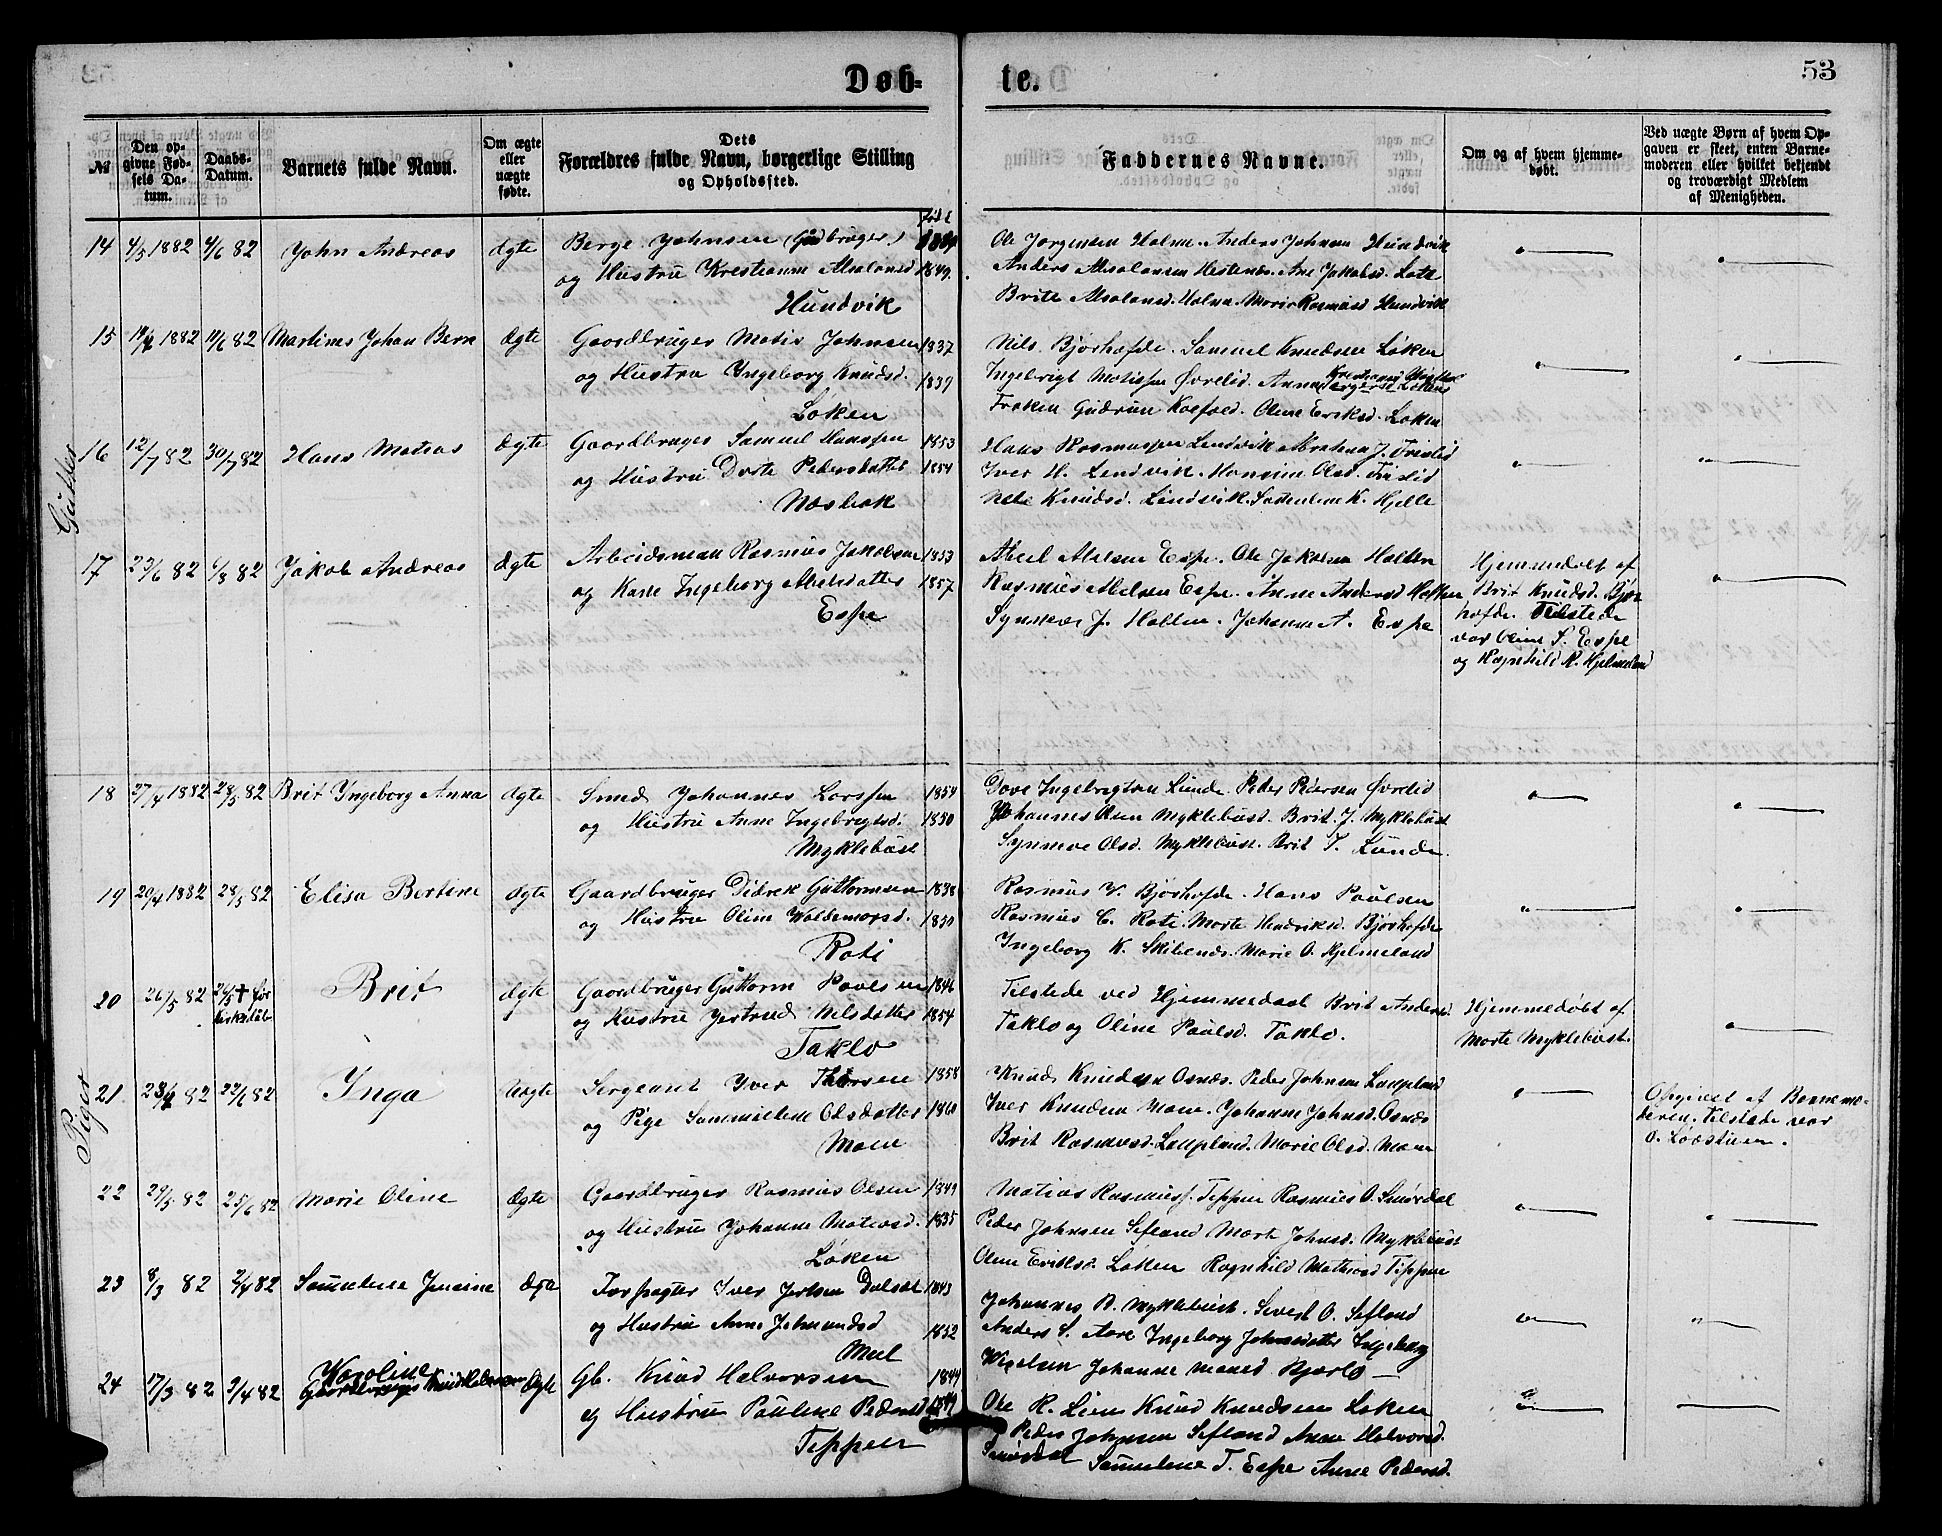 Døb-
te.
53
No
Den op-
givne Fød-
sels Da-
tum.
Daabs-
Datum.
Barnets fulde Navn.
Om ægte
eller
uægte
fødte.
Dets
Forældres fulde Navn, borgerlige Stilling
og Opholdssted.
Faddernes Navne.
Om og af hvem hjemme-
døbt.
Ved uægte Børn af hvem Op-
gaven er skeet, enten Barne-
moderen eller hvilket bekjendt
og troværdigt Medlem
af Menigheden.
Gutter
14 4/5 1882 4/6 82 John Andreas Ægte Berge Johnsen (Gdbruger)
og Hustru Krestianne Absalonsd 1849.
Hundvik
Ole Jørgensen Holme. Anders Johnsen Hundvik
Anders Absalonsen Hestenes. Ane Jakobsd. Lote
Brite Absalonsd. Holme. Marie Rasmusd Hundvik
15 1882 11/6 82 Martines Johan Bern Ægte Gaardbruger Matis Johnsen 1837
og Hustru Ingeborg Knudsd. 1839
Løken
Nils Bjørhofde. Samuel Knudsen Løken
Ingebrigt Matissen Øvrelid. Anna
Frøken Gudrun Koefoed. Oline Eriksd. Løken
16 12/7 82 30/7 82 Hans Matias Ægte Gaardbruger Samuel Hanssen 1853
og Hustru Dorte Pedersdatter 1854
Nosbak
Hans Rasmussen Lendvik Abraham J. Frislid
Iver H. Lendvik. Hansine Olsd. Frislid
Nele Knudsd. Lindvik. Samueline K. Hjelle
17 23/6 82 6/8 82 Jakob Andreas Ægte Arbeidsman Rasmus Jakobsen 1853
og Kone Ingeborg Abelsdatter 1857
Espe
Abel Abelsen Espe. Ole Jakobsen Holten
Rasmus Abelsen Espe. Anne Andersd Holten
Synneve J. Holten. Johanne A. Espe
Hjemmedøbt af
Brit Knudsd. Bjør
hofde. Tilstede
var Oline S. Espe
og Ragnhild R. Hjelmeland
Piger
18 27/4 1882 28/5 82 Brit Ingeborg Anna Ægte Smed Johannes Larssen 1854
og Hustru Anne Ingebrigtsd. 1850
Myklebust
Tove Ingebrigtsen Lunde. Peder Pedersen Øvrelid
Johannes Olsen Myklebust. Brit J. Myklebust
Synneve Olsd. Myklebust. Brit T. Lunde.
19 20/4 1882 28/5 82 Elisa Bertine Ægte Gaardbruger Didrek Guttormsen 1838
og Hustru Oline Waldemarsd. 1850
Roti
Rasmus V. Bjørhofde. Hans Paulsen
Rasmus C. Roti. Marte Hendriksd. Bjørhofde
Ingeborg K. Skibenes. Marie O. Hjelmeland
20 26/5 82 26/5 † før
kirkedåb
Brit Ægte Gaardbruger Guttorm Paulsen 1846
og Hustru Jertrud Nilsdatter 1854
Taklo
Tilstede ved Hjemmedaab Brit Andersd.
Taklo og Oline Paulsd. Taklo.
Hjemmedøbt af
Marte Myklebust.
21. 82 22/6 82 Inga Uægte Sergeant Iver Thorsen 1858
og Pige Sammeline Olsdatter 1860
Moen
Knud Knudsen Osnes. Peder Johnsen Laupland
Iver Knudsen Moen. Johanne Johnsd. Osnes
Brit Rasmusd. Laupland. Marie Olsd. Moen
Opgivet af Barnemo-
deren. Tilstede var
22 29/5 82 25/6 82 Marie Oline Ægte Gaardbruger Rasmus Olsen 1849
og Hustru Johanne Matiasd. 1855
Løken
Matias Rasmuss. Teppen Rasmus O. Smørdal
Peder Johnsen Sefland Marte Johnsd. Myklebust
Oline Eriksd. Løken Ragnhild Mathiasd Tippen
23 8/3 82 2/4 82 Samueline Jensine Ægte Forpagter Iver Jertsen Dalset 1843
og Hustru Anne Jetmundsd 1852
Mel
Johannes R. Myklebust. Sivert O. Sefland
Anders S. Aare Ingeborg Johnsdatter Ingeborg
Johanne Hjørlo
24 17/3 82 2/4 82 Karoline Ægte Gb. Knud Halvorsen 1844
og Hustru Pauline Pedersd 1849
Teppen
Ole R. Lien Knud Knudsen Løken
Peder Johnsen Sefland Anne Halvorsd.
Smørdal Samueline T. Espe Anne Pedersd.